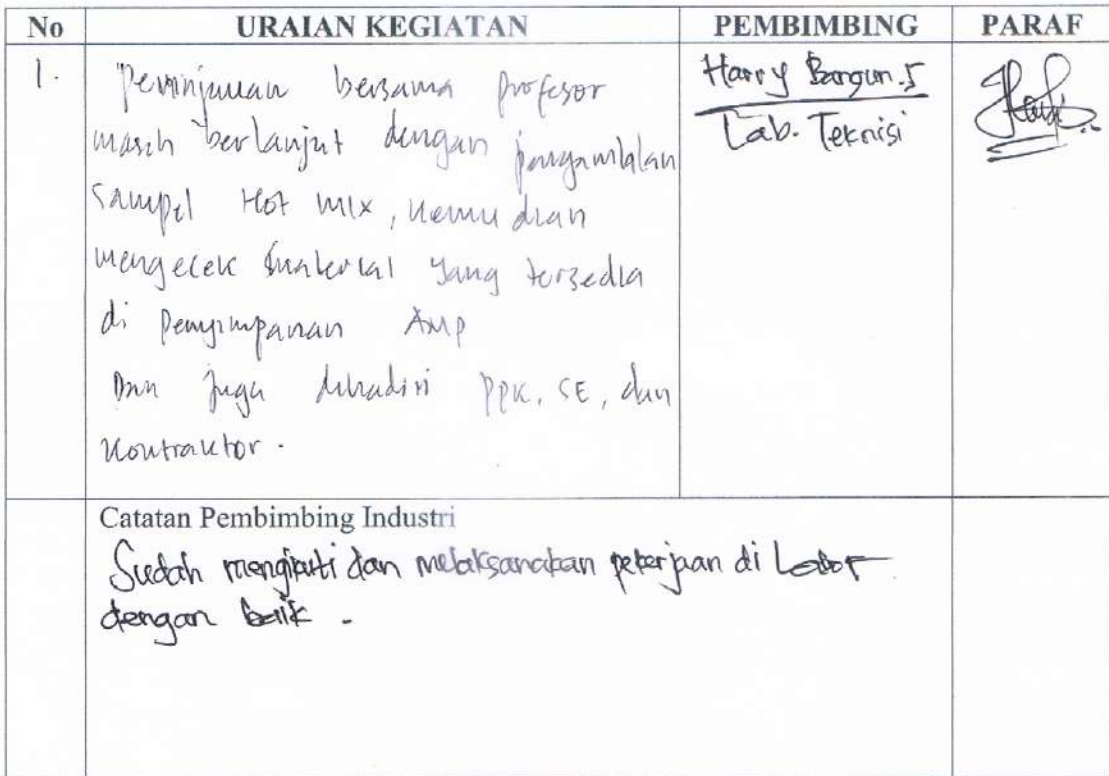 No URAIAN KEGIATAN PEMBIMBING PARAF
1. Peninjauan bersama profesor
masih berlanjut dengan pengambilan
sampel Hot mix, kemudian
mengecek material yang tersedia
di Penyimpanan AMP
Dan juga dihadiri PPK, SE, dan
Kontraktor.
Harry Bangun. S
Lab. Teknisi
Catatan Pembimbing Industri
Sudah mengikuti dan melaksanakan pekerjaan di
dengan baik.